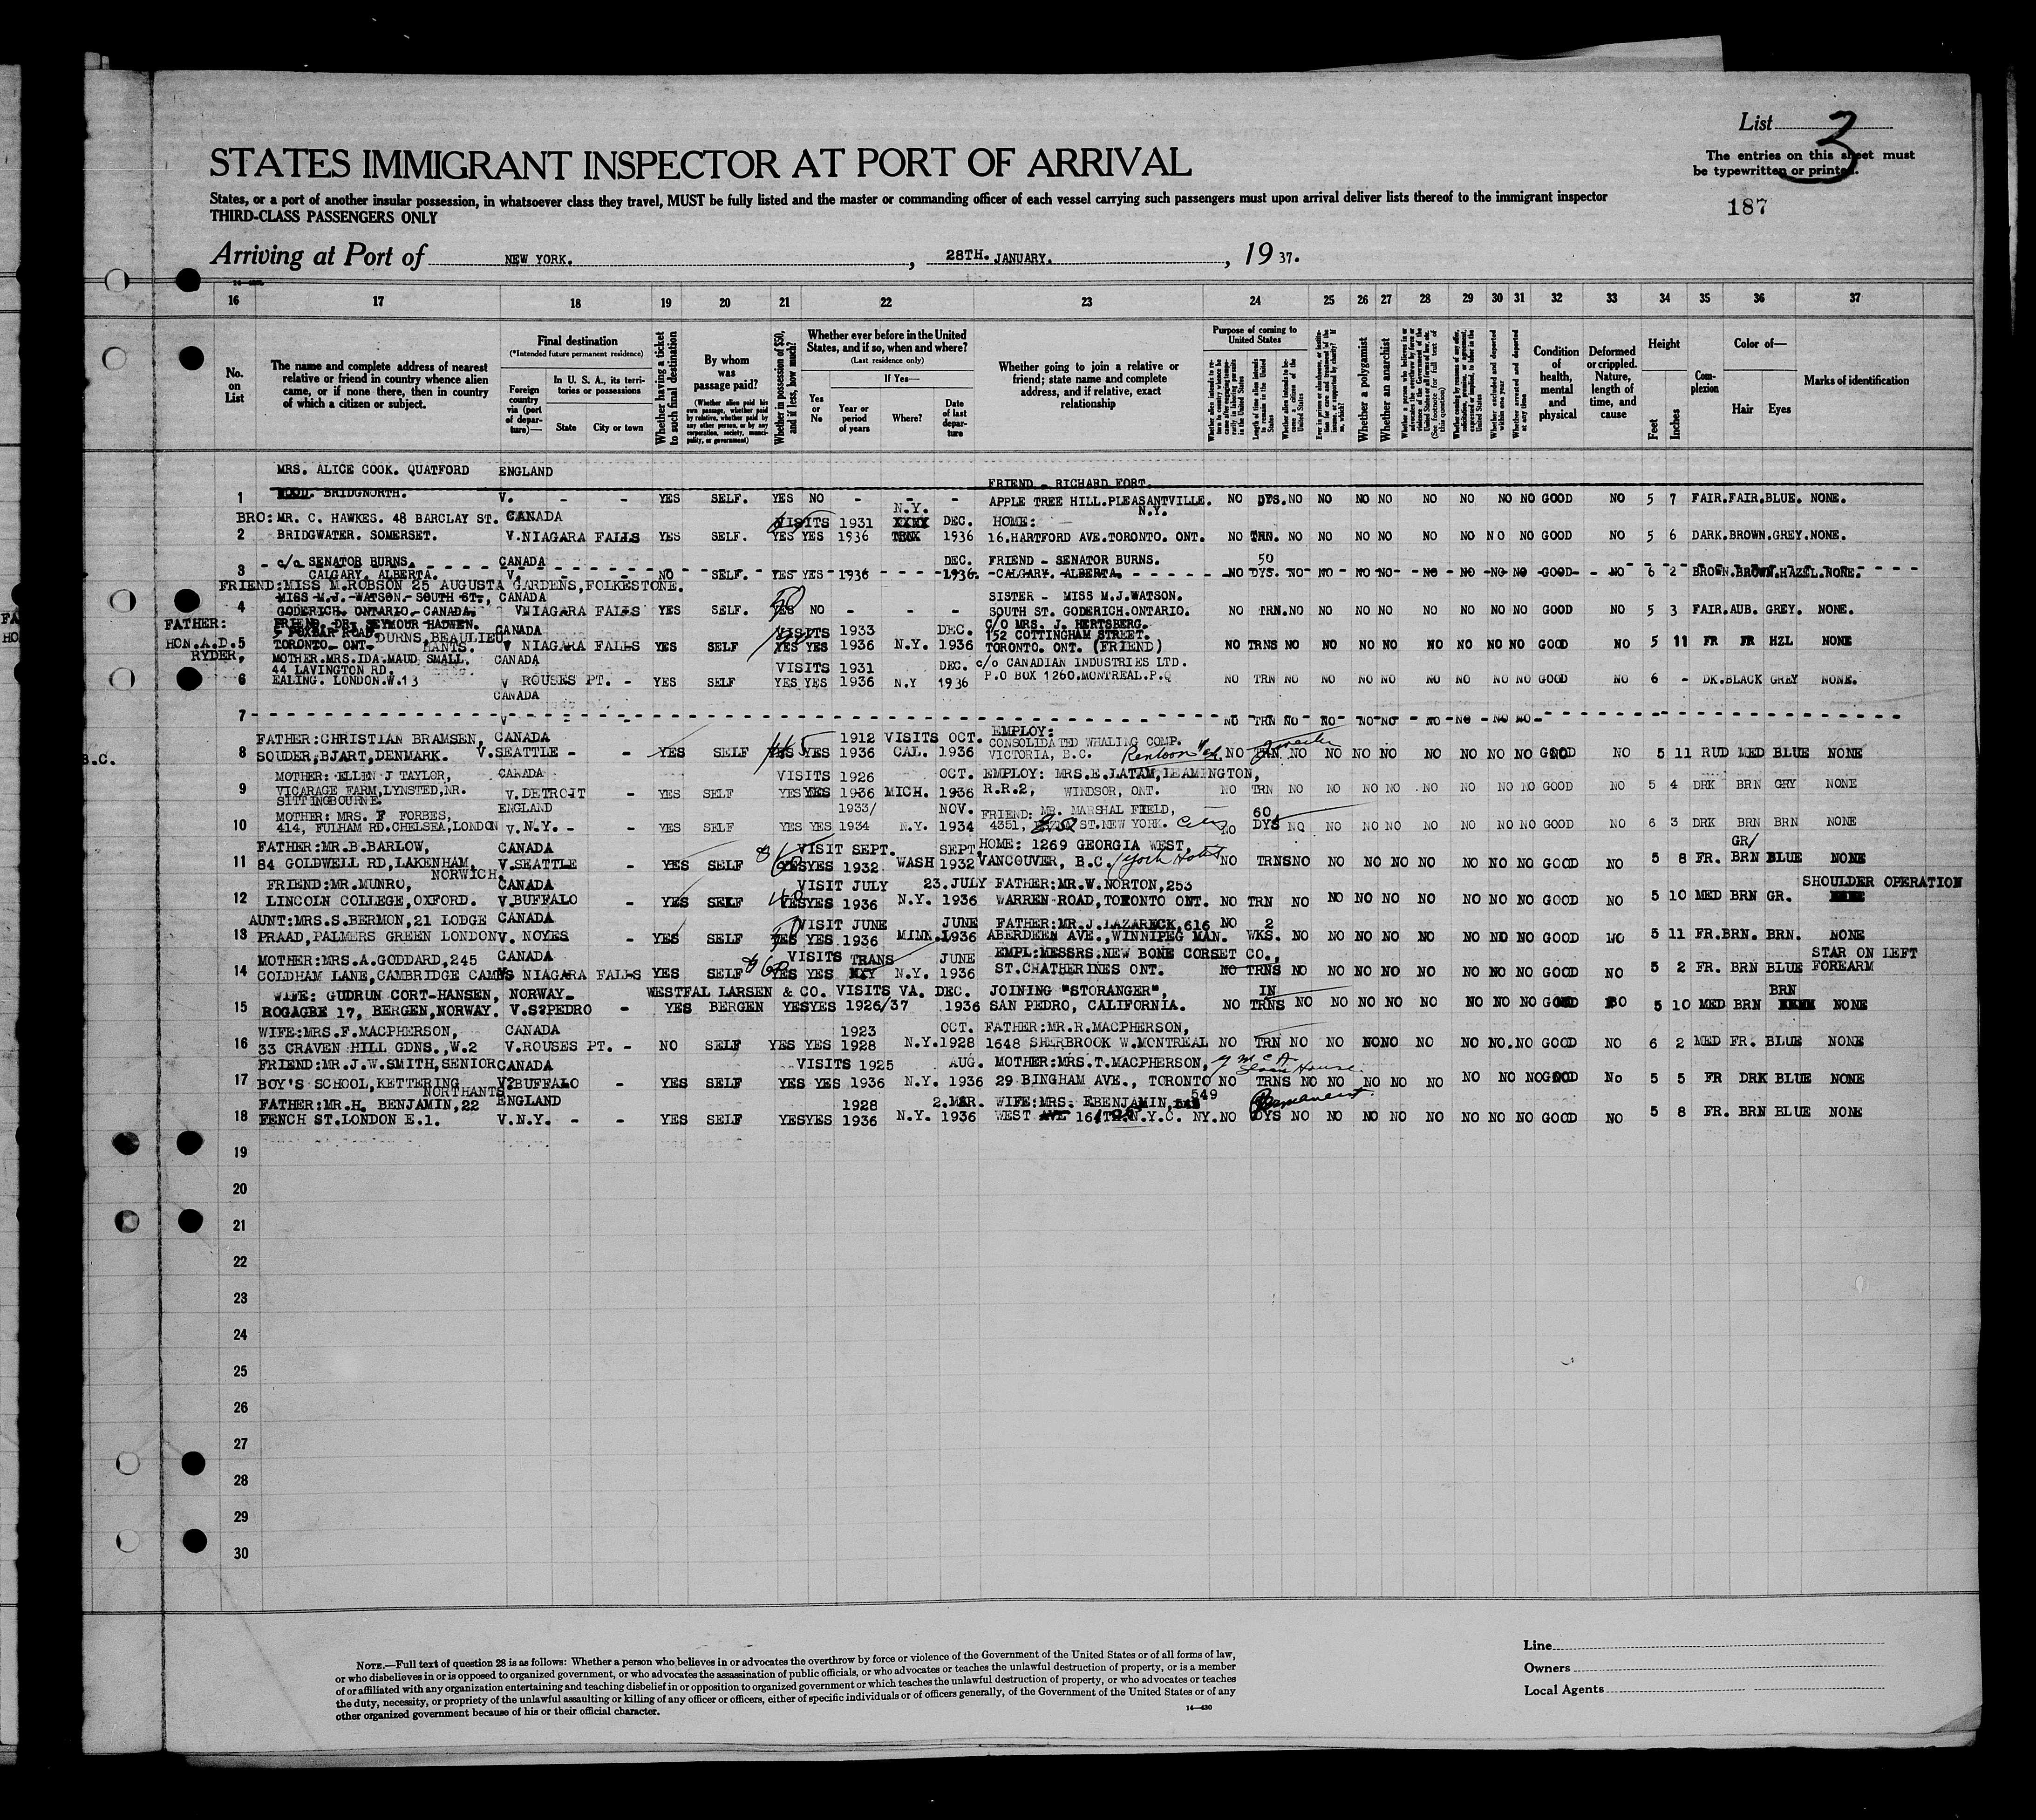 List 3
The entries on this sheet must
be typewritten or printed.
187
STATES IMMIGRANT INSPECTOR AT PORT OF ARRIVAL
States, or a port of another insular possession, in whatsoever class they travel, MUST be fully listed and the master or commanding officer of each vessel carrying such passengers must upon arrival deliver lists thereof to the immigrant inspector
THIRD-CLASS PASSENGERS ONLY
Arriving at Port of NEW YORK. , 28TH. JANUARY. , 19 37.
16 17 18 19 20 21 22 23 24 25 26 27 28 29 30 31 32 33 34 35 36 37
No. on List
The name and complete address of nearest relative or friend in country whence alien came, or if none there, then in country of which a citizen or subject.
Final destination
(*Intended future permanent residence)
Foreign country via (port of departure)—
In U. S. A., its territories or possessions
State City or town
Whether having a ticket to such final destination
By whom was passage paid?
(Whether alien paid his own passage, whether paid by relative, whether paid by any other person, or by any corporation, society, municipality, or government)
Whether in possession of $50, and if less, how much?
Whether ever before in the United States, and if so, when and where?
(Last residence only)
Yes or No
If Yes—
Year or period of years
Where?
Date of last departure
Whether going to join a relative or friend; state name and complete address, and if relative, exact relationship
Purpose of coming to United States
Length of time alien intends to remain in the United States
Whether a polygamist
Whether an anarchist
Condition of health, mental and physical
Deformed or crippled. Nature, length of time, and cause
Height
Feet Inches
Complexion
Color of—
Hair Eyes
Marks of identification
MRS. ALICE COOK. QUATFORD ENGLAND FRIEND - RICHARD FORT.
1 BRIDGNORTH. V. - - YES SELF. YES NO - - - APPLE TREE HILL.PLEASANTVILLE. N.Y. NO DYS. NO NO NO NO NO NO NO NO GOOD NO 5 7 FAIR.FAIR.BLUE. NONE.
BRO: MR. C. HAWKES. 48 BARCLAY ST. CANADA VISITS 1931 N.Y. DEC. HOME:
2 BRIDGWATER. SOMERSET. V.NIAGARA FALLS YES SELF. YES YES 1936 1936 16.HARTFORD AVE.TORONTO. ONT. NO TRN. NO NO NO NO NO NO NO NO GOOD NO 5 6 DARK.BROWN.GREY.NONE.
c/o SENATOR BURNS. CANADA DEC. FRIEND - SENATOR BURNS. 50
3 CALGARY. ALBERTA. V. NO SELF. YES YES 1936 1936. CALGARY. ALBERTA. NO DYS. NO NO NO NO NO NO NO NO GOOD NO 6 2 BROWN.BROWN.HAZEL.NONE.
FRIEND:MISS M.ROBSON 25 AUGUSTA GARDENS,FOLKESTONE.
MISS M.J. WATSON. SOUTH ST., CANADA 50 SISTER - MISS M.J.WATSON.
4 GODERICH. ONTARIO. CANADA. V NIAGARA FALLS YES SELF. YES NO - - - SOUTH ST. GODERICH.ONTARIO. NO TRN. NO NO NO NO NO NO NO NO GOOD NO 5 3 FAIR.AUB. GREY. NONE.
FATHER: FRIEND. DR. SEYMOUR HADWEN. CANADA VISITS 1933 DEC. C/O MRS. J. HERTSBERG.
DURNS,BEAULIEU 152 COTTINGHAM STREET.
HON.A.D. RYDER, 5 TORONTO. ONT. HANTS. V NIAGARA FALLS YES SELF YES YES 1936 N.Y. 1936 TORONTO. ONT. (FRIEND) NO TRNS NO NO NO NO NO NO NO NO GOOD NO 5 11 FR FR HZL NONE
MOTHER.MRS.IDA.MAUD SMALL. CANADA VISITS 1931 DEC. c/o CANADIAN INDUSTRIES LTD.
44 LAVINGTON RD.
6 EALING. LONDON.W.13 V ROUSES PT. - YES SELF YES YES 1936 N.Y 1936 P.O BOX 1260.MONTREAL.P.Q NO TRN NO NO NO NO NO NO NO NO GOOD NO 6 - DK.BLACK GREY NONE.
CANADA
7 V NO TRN NO NO NO NO NO NO NO NO
FATHER:CHRISTIAN BRAMSEN, CANADA 1912 VISITS OCT. EMPLOY:
CONSOLIDATED WHALING COMP.
B.C. 8 SOUDER,BJART,DENMARK. V.SEATTLE - - YES SELF YES YES 1936 CAL. 1936 VICTORIA, B.C. NO TRN NO NO NO NO NO NO NO NO GOOD NO 5 11 RUD MED BLUE NONE
MOTHER: ELLEN J TAYLOR, CANADA VISITS 1926 OCT. EMPLOY: MRS.E.LATAM,LEAMINGTON,
9 VICARAGE FARM,LYNSTED,NR. V.DETROIT - YES SELF YES YES 1936 MICH. 1936 R.R.2, WINDSOR, ONT. NO TRN NO NO NO NO NO NO NO NO GOOD NO 5 4 DRK BRN GRY NONE
SITTINGBOURNE. ENGLAND 1933/ NOV. FRIEND: MR. MARSHAL FIELD, 60
MOTHER: MRS. F FORBES,
10 414, FULHAM RD.CHELSEA,LONDON V.N.Y. - - YES SELF YES YES 1934 N.Y. 1934 4351, ST.NEW YORK. City NO DYS NO NO NO NO NO NO NO NO GOOD NO 6 3 DRK BRN BRN NONE
FATHER:MR.B.BARLOW, CANADA VISIT SEPT. SEPT HOME: 1269 GEORGIA WEST, GR/
11 84 GOLDWELL RD,LAKENHAM, V.SEATTLE - YES SELF $60 YES YES 1932 WASH 1932 VANCOUVER, B.C. York Hotel NO TRNS NO NO NO NO NO NO NO NO GOOD NO 5 8 FR. BRN BLUE NONE
NORWICH.
FRIEND:MR.MUNRO, CANADA VISIT JULY 23.JULY FATHER:MR.W.NORTON,253 SHOULDER OPERATION
12 LINCOLN COLLEGE,OXFORD. V.BUFFALO - YES SELF YES YES 1936 N.Y. 1936 WARREN ROAD,TORONTO ONT. NO TRN NO NO NO NO NO NO NO NO GOOD NO 5 10 MED BRN GR.
AUNT:MRS.S.BERMON,21 LODGE CANADA VISIT JUNE JUNE FATHER:MR.J.LAZARECK,616 NO 2
13 PRAAD,PALMERS GREEN LONDON V. NOYES - YES SELF YES YES 1936 MINN. 1936 ABERDEEN AVE.,WINNIPEG MAN. WKS. NO NO NO NO NO NO NO NO GOOD NO 5 11 FR.BRN. BRN. NONE
MOTHER:MRS.A.GODDARD,245 CANADA VISITS TRANS JUNE EMPL:MESSRS:NEW BONE CORSET CO., STAR ON LEFT
14 COLDHAM LANE,CAMBRIDGE CAMBS NIAGARA FALLS YES SELF $60 YES YES N.Y. 1936 ST.CHATHERINES ONT. NO TRNS NO NO NO NO NO NO NO NO GOOD NO 5 2 FR. BRN BLUE FOREARM
WIFE: GUDRUN CORT-HANSEN, NORWAY- WESTFAL LARSEN & CO. VISITS VA. DEC. JOINING "STORANGER", IN BRN
15 ROGAGBE 17, BERGEN,NORWAY. V.S?PEDRO - YES BERGEN YES YES 1926/37 1936 SAN PEDRO, CALIFORNIA. NO TRNS NO NO NO NO NO NO NO NO GOOD NO 5 10 MED BRN NONE
WIFE:MRS.F.MACPHERSON, CANADA 1923 OCT. FATHER:MR.R.MACPHERSON,
16 33 CRAVEN HILL GDNS.,W.2 V.ROUSES PT. - NO SELF YES YES 1928 N.Y.1928 1648 SHERBROOK W.MONTREAL NO TRN NO NO NO NO NO NO NO. NO GOOD NO 6 2 MED FR. BLUE NONE
FRIEND:MR.J.W.SMITH,SENIOR CANADA VISITS 1925 AUG. MOTHER:MRS.T.MACPHERSON, Y M C A Sloan House.
17 BOY'S SCHOOL,KETTERING V?BUFFALO - YES SELF YES YES 1936 N.Y. 1936 29 BINGHAM AVE., TORONTO NO TRNS NO NO NO NO NO NO NO NO GOOD No 5 5 FR DRK BLUE NONE
NORTHANTS
FATHER:MR.H. BENJAMIN,22 ENGLAND 1928 2.MAR. WIFE:MRS. EBENJAMIN, 549 Permanent.
18 FENCH ST.LONDON E.1. V.N.Y. - - YES SELF YES YES 1936 N.Y. 1936 WEST N.Y.C. NY. NO DYS NO NO NO NO NO NO NO NO GOOD NO 5 8 FR. BRN BLUE NONE
19
20
21
22
23
24
25
26
27
28
29
30
NOTE.—Full text of question 28 is as follows: Whether a person who believes in or advocates the overthrow by force or violence of the Government of the United States or of all forms of law,
or who disbelieves in or is opposed to organized government, or who advocates the assassination of public officials, or who advocates or teaches the unlawful destruction of property, or is a member
of or affiliated with any organization entertaining and teaching disbelief in or opposition to organized government or which teaches the unlawful destruction of property, or who advocates or teaches
the duty, necessity, or propriety of the unlawful assaulting or killing of any officer or officers, either of specific individuals or of officers generally, of the Government of the United States or of any
other organized government because of his or their official character.
14—430
Line
Owners
Local Agents